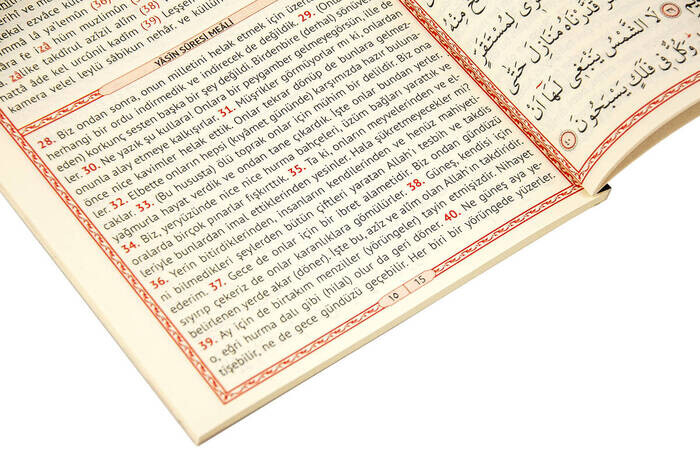 rihi ve men
tekal ezvâce küllehâ
mmâ lâ ya'lemûn (36)
fe izâ hüm muzlimûn (37)
zâlike takdîrul azîzil alîm (38)
hattâ âde kel urcûnil kadîm (39)
kamera velel leylü sâbikun nehâr, ve küllün
YASİN SÛRESİ MEÂLİ
28. Biz ondan sonra, onun milletini helak etmek için üzerlerine
herhangi bir ordu indirmedik ve indirecek de değildik. 29. Onları
eden) korkunç sesten başka bir şey değildi. Birdenbire (derhal) sönüver
ler. 30. Ne yazık şu kullara! Onlara bir peygamber gelmeyegörsün, ille de
onunla alay etmeye kalkışırlar. 31. Müşrikler görmüyorlar mı ki, onlardan
önce nice kavimler helak ettik. Onlar tekrar dönüp de bunlara gelmez-
ler. 32. Elbette onların hepsi (kıyâmet gününde) karşımızda hazır buluna-
caklar. 33. (Bu hususta) ölü toprak onlar için mühim bir delildir. Biz ona
yağmurla hayat verdik ve ondan tane çıkardık. İşte onlar bundan yerler.
34. Biz, yeryüzünde nice nice hurma bahçeleri, üzüm bağları yarattık ve
oralarda birçok pınarlar fışkırttık. 35. Ta ki, onların meyvelerinden ve el-
leriyle bunlardan imal ettiklerinden yesinler. Hala şükretmeyecekler mi?
36. Yerin bitirdiklerinden, insanların kendilerinden ve henüz mahiyeti-
ni bilmedikleri şeylerden bütün çiftleri yaratan Allah'ı tesbih ve takdis
ederim. 37. Gece de onlar için bir ibret alametidir. Biz ondan gündüzü
sıyırıp çekeriz de onlar karanlıklara gömülürler. 38. Güneş, kendisi için
belirlenen yerde akar (döner). İşte bu, azîz ve alîm olan Allah'ın takdiridir.
39. Ay için de birtakım menziller (yörüngeler) tayin etmişizdir. Nihayet
o, eğri hurma dalı gibi (hilal) olur da geri döner. 40. Ne güneş aya ye-
tişebilir, ne de gece gündüzü geçebilir. Her biri bir yörüngede yüzerler.
١٥ 15
لِمُسْتَقَرٍّ
قَدَّرْنَاهُ مَنَازِلَ حَتّٰى
لَا الشَّمْسُ يَنْبَغٖى لَهَٓا اَنْ
وَكُلٌّ فٖى فَلَكٍ يَسْبَحُونَ ٤٠